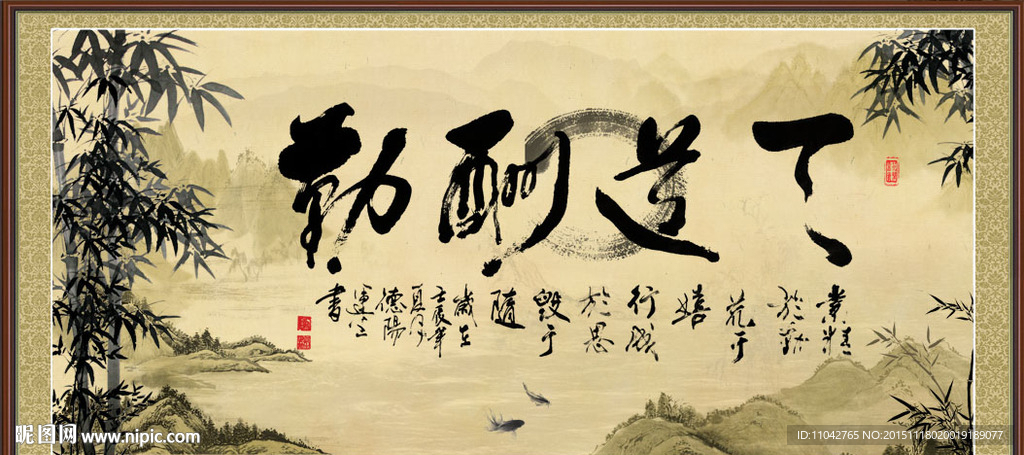 天道酬勤
業精
於勤
荒于
嬉
行成
於思
毀于
隨
歲在
壬辰年
夏月
德陽
書
昵图网 www.nipic.com
ID:11042765 NO:20151118020019189077